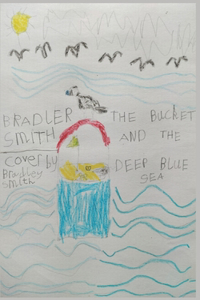 BRADLER
SMITH
cover by
Bradley
Smith
THE BUCKET
AND THE
DEEP BLUE
SEA